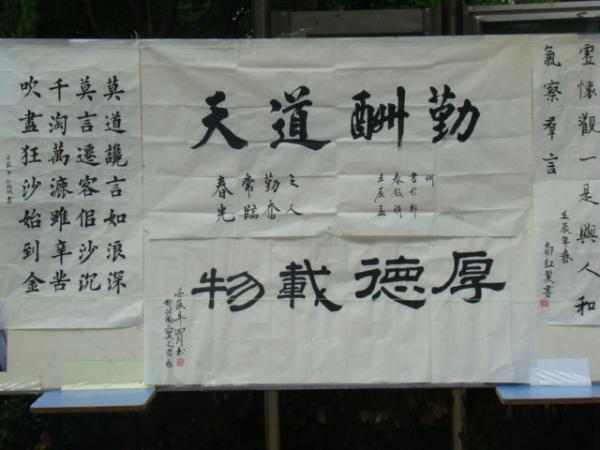 虛懷觀一是與人和
氣察羣言
壬辰年春
天道酬勤
春光
常臨
勤奮
之人
壬辰孟
書於鄭
州
厚德載物
壬辰年四月書
莫道讒言如浪深
莫言遷客佀沙沉
千淘萬漉雖辛苦
吹盡狂沙始到金